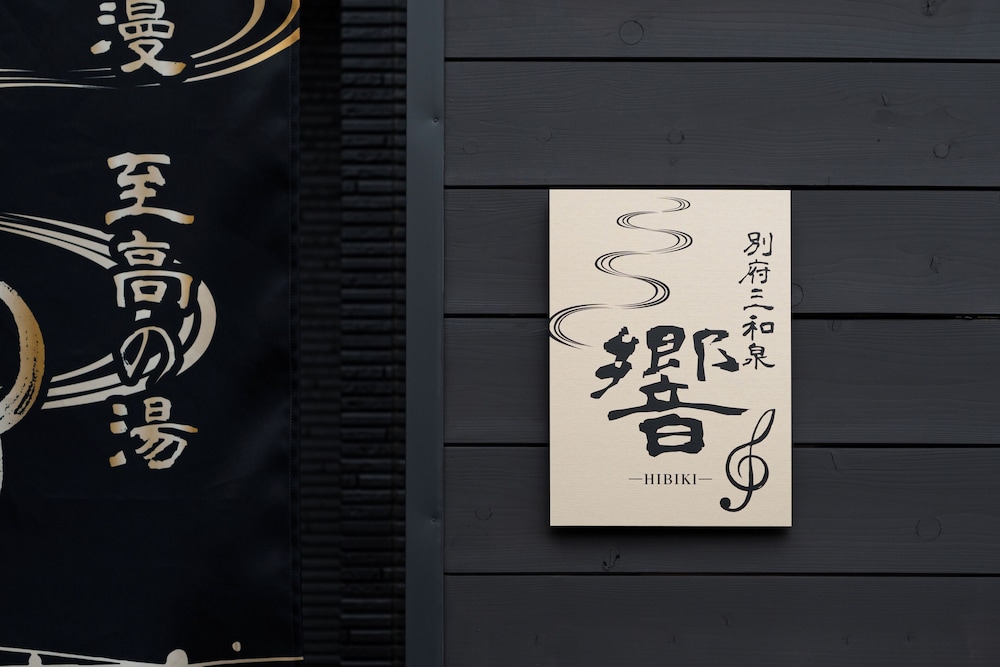 別府三和泉
響
—HIBIKI—
漫
至高の湯